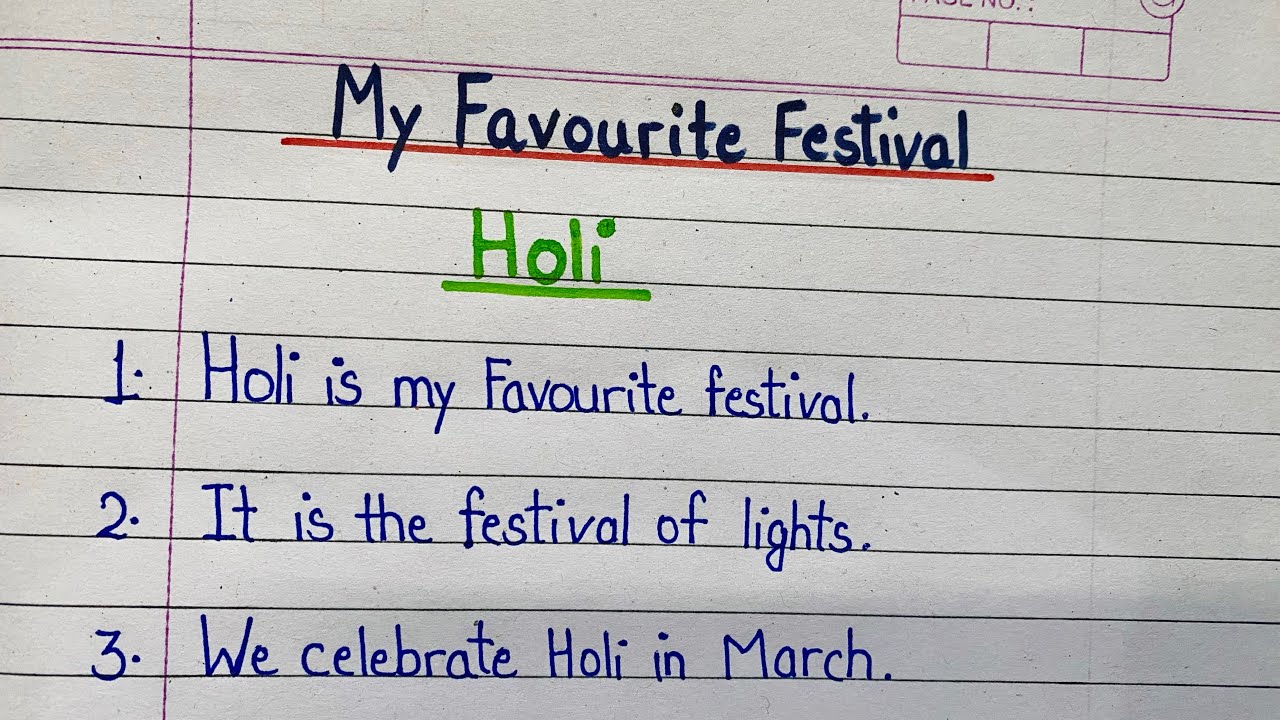 PAGE NO.:
My Favourite Festival
Holi
1. Holi is my Favourite festival.
2. It is the festival of lights.
3. We celebrate Holi in March.